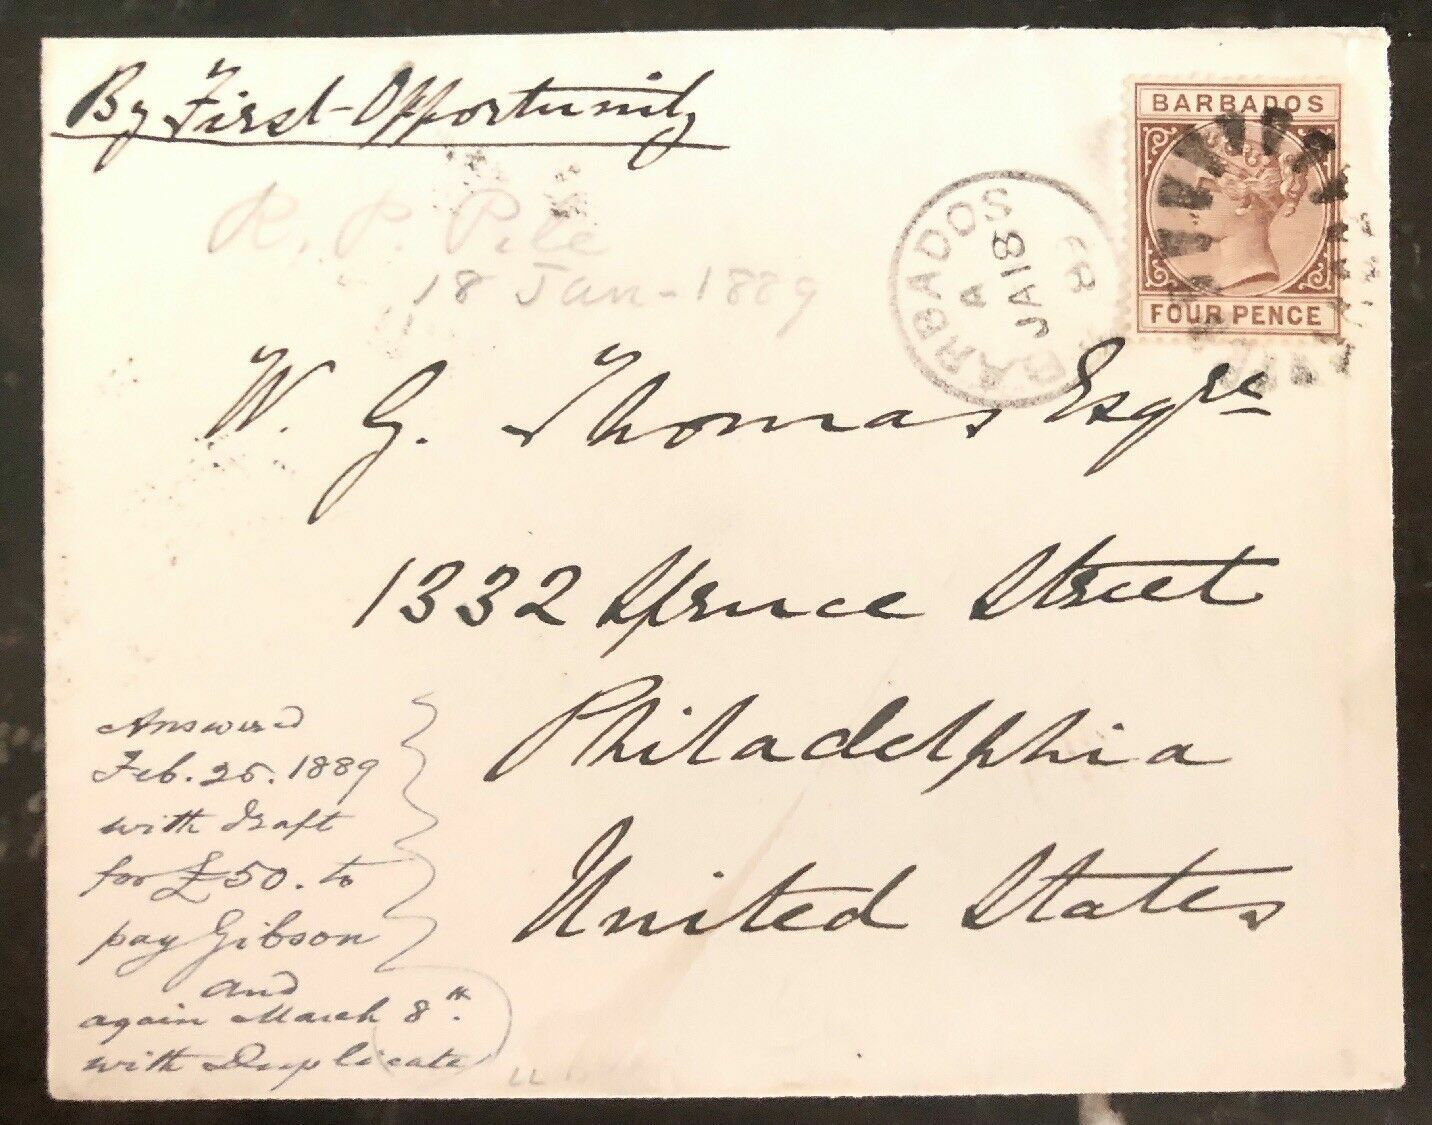 By First-Opportunity
BARBADOS
FOUR PENCE
BARBADOS
A
JA 18
89
R. P. Pile
18 Jan - 1889
W. G. Thomas Esqre
1332 Spruce Street
Philadelphia
United States
Answered
Feb. 25. 1889
with draft
for £50. to
pay Gibson
and
again March 8th.
with Duplicate